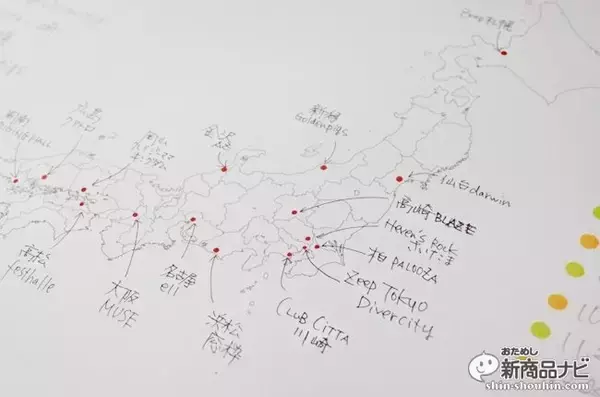 新潟
Goldenpigs
金沢
AZ
岡山
広島
クアトロ
仙台darwin
高崎BLAZE
Heven's Rock
さいたま
柏 PALOOZA
Zeep Tokyo
Divercity
CLUB CITTA
川崎
浜松
窓枠
名古屋
ell
大阪
MUSE
高松
festhalle
おためし
新商品ナビ
shin-shouhin.com